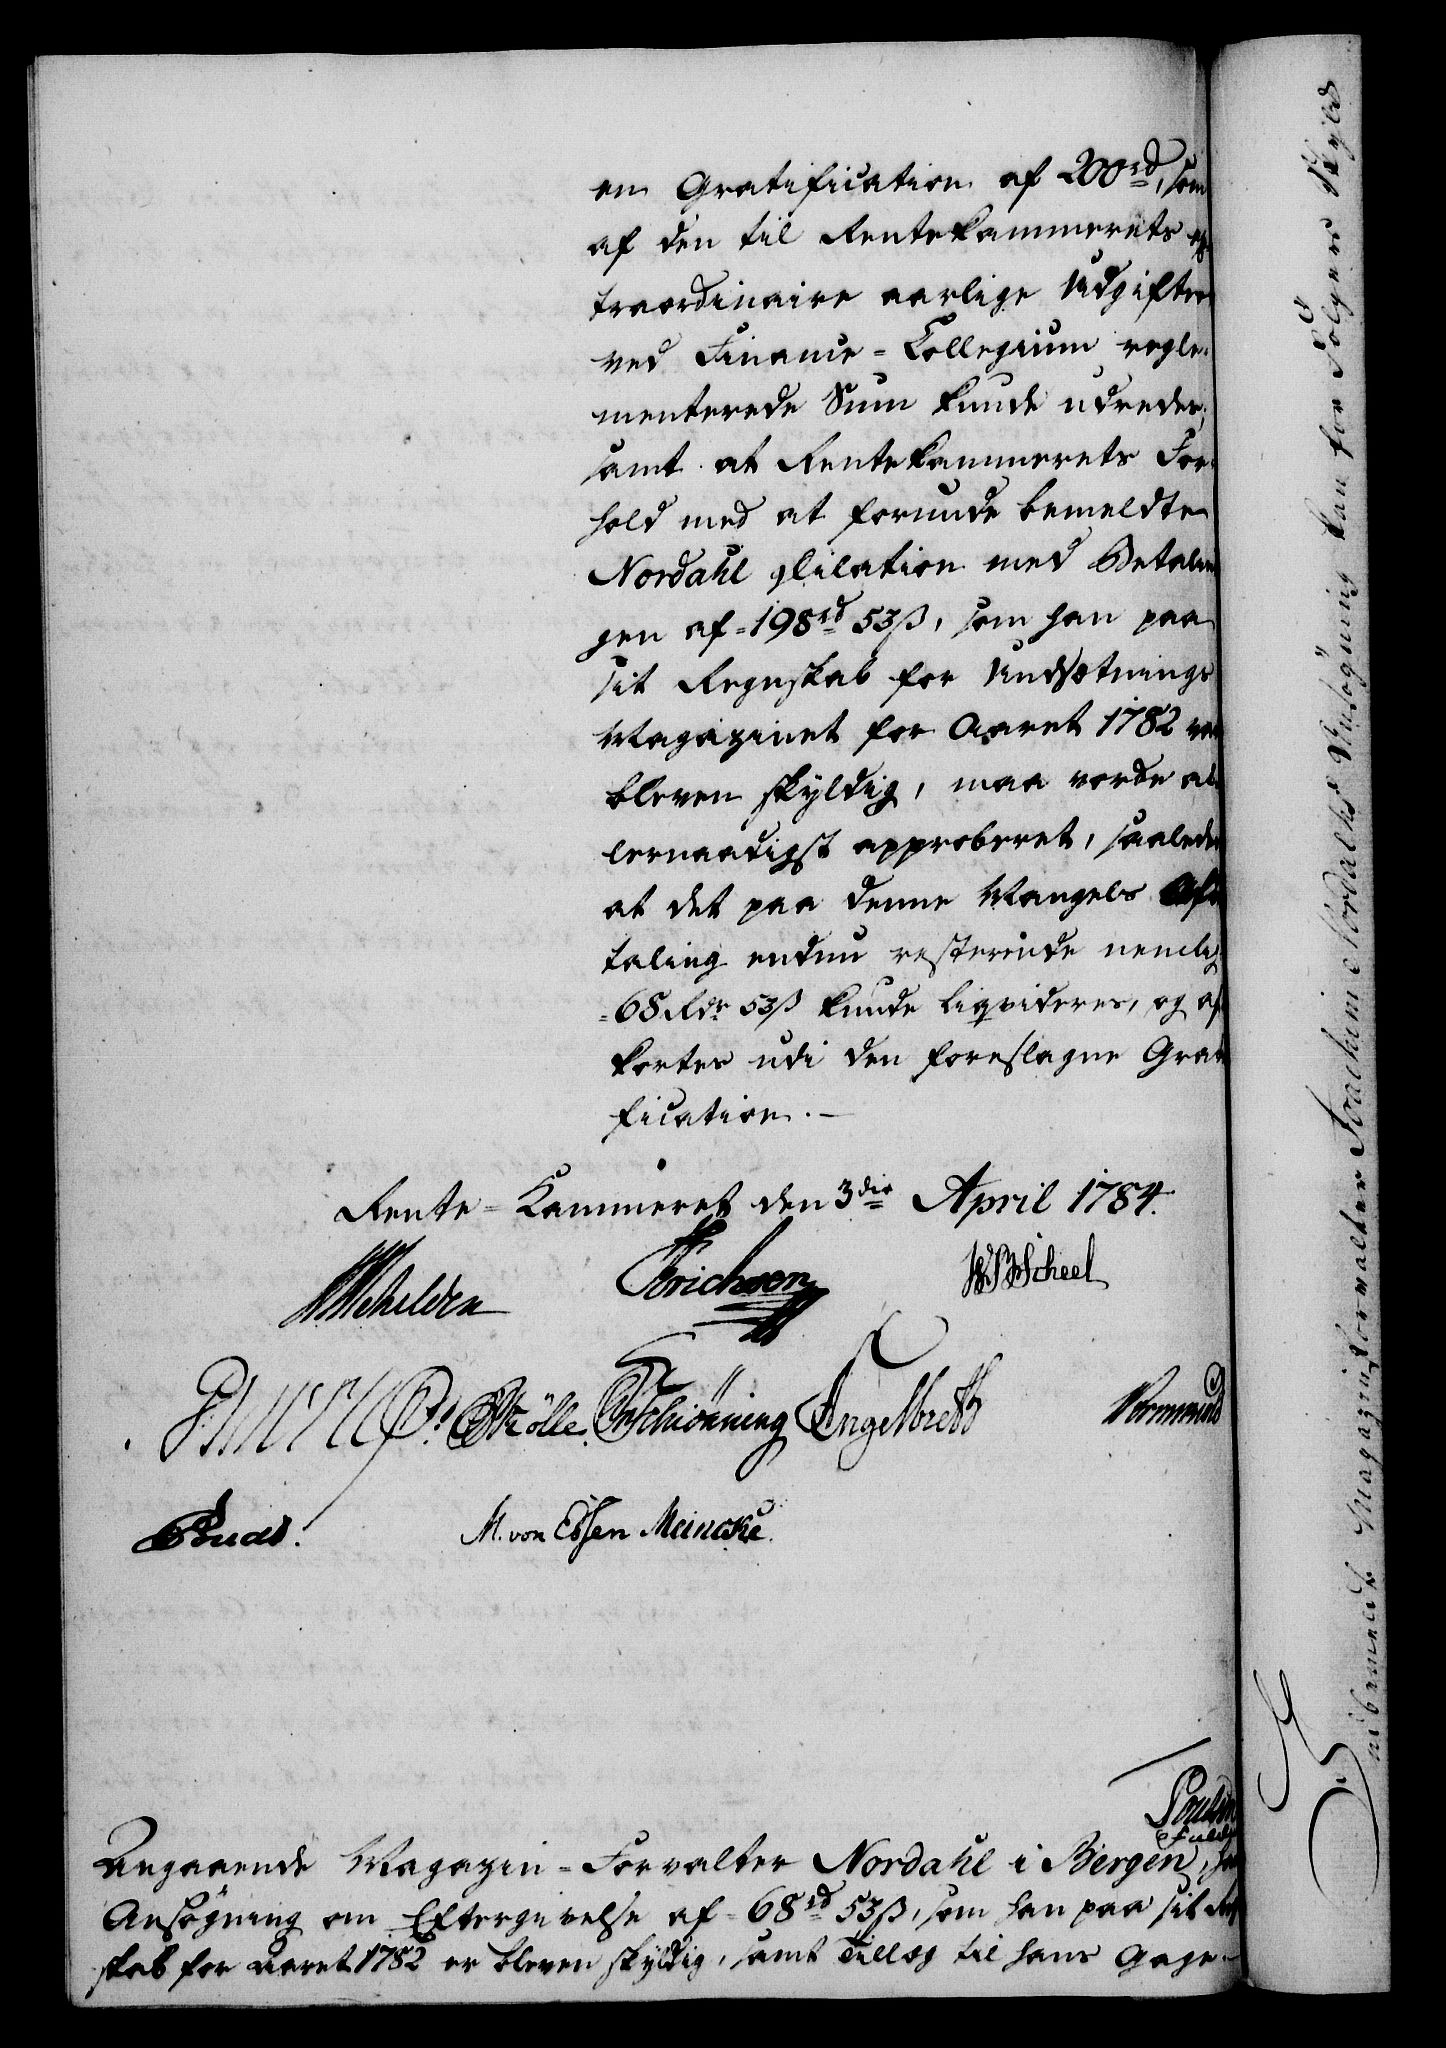 en Gratification af 200rd, som
af den til Rentekammerets ex
traordinaire aarlige Udgifter
ved Finance-Collegium regle-
menterede Sum kunde udredes,
samt at Rentekammerets For-
hold med at forunde bemeldte
Nordahl Dilation med Betalin
gen af 198rd 53ß, som han paa
sit Regnskab for Undsætnings
Magazinet for Aaret 1782 var
bleven skyldig, maa vorde al
lernaadigst approberet, saaledes
at det paa denne Mangels Afb
taling endnu resterende nemlig
68 Rdr 53ß kunde liqvideres, og af
kortes udi den foreslagne Grat
fication.
Rente-Kammeret den 3die April 1784.
Erichsen Scheel
Mölle. Schiönning Engelbreth Wormskiold
M. von Essen Meincke.
Angaaende Magazin-Forvalter Nordahl i Bergen, hans
Ansøgning om Eftergivelse af 68rd 53ß, som han paa sit Reg
skab for Aaret 1782 er bleven skyldig, samt Tillæg til hans Gage
Magazinforvalter Joachim Nordahls Ansøgning kan for